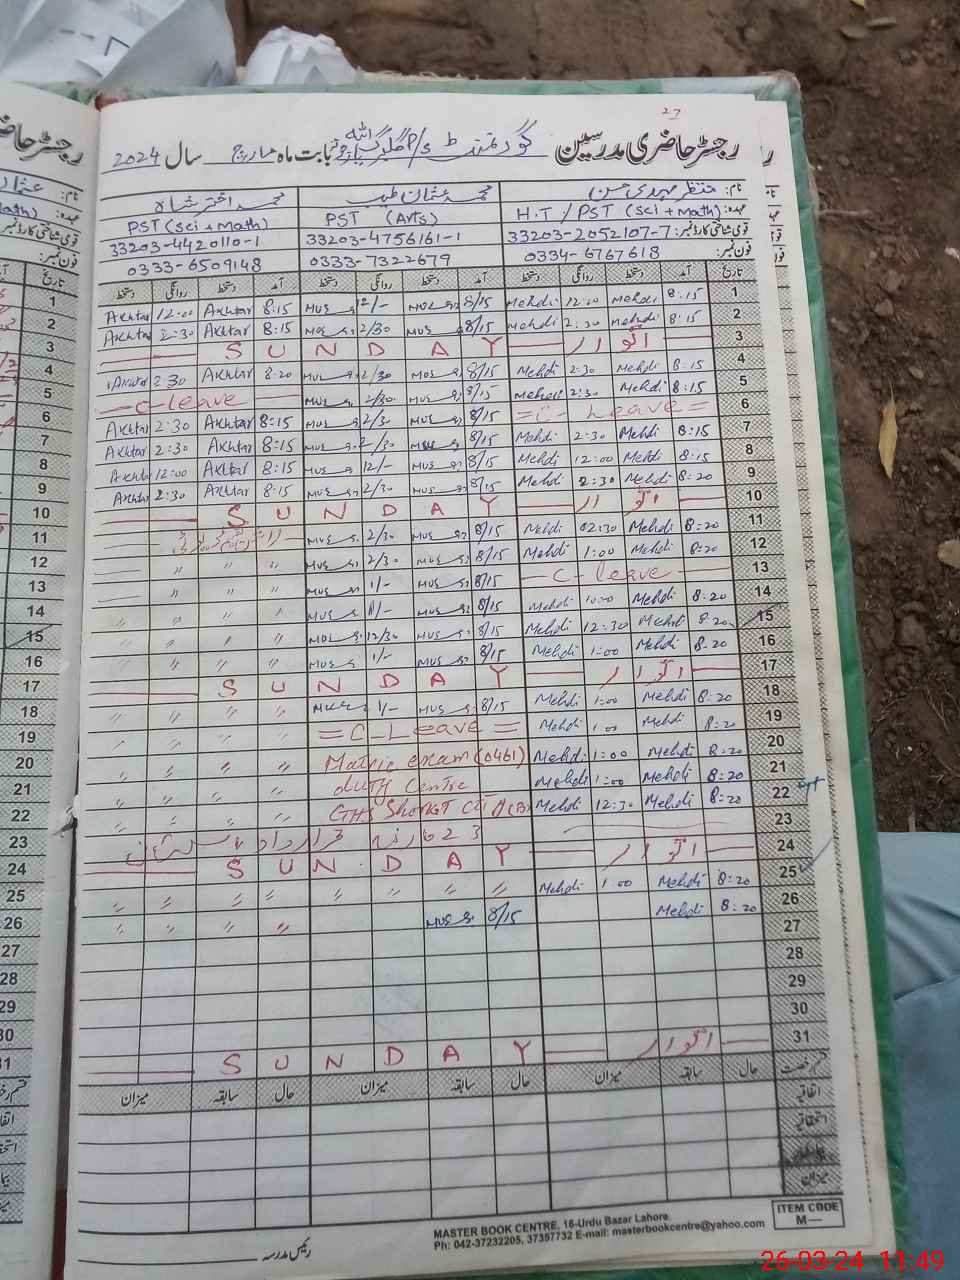 27
رجسٹر حاضری مدرسین گورنمنٹ P/S بابت ماہ مارچ سال 2024
نام: منتظر مہدی حسن محمد عثمان طیب محمد اختر شاہ
عہدہ: H.T / PST (sci + math) PST (Arts) PST (sci + math)
قومی شناختی کارڈ نمبر: 33203-2052107-7 33203-4756161-1 33203-4420110-1
فون نمبر: 0334-6767618 0333-7322679 0333-6509148
تاریخ آمد دستخط روانگی دستخط آمد دستخط روانگی دستخط آمد دستخط روانگی دستخط
1 8:15 Mehdi 12:00 Mehdi 8/15 12/- 8:15 Akhtar 12:00 Akhtar
2 8:15 Mehdi 2:30 Mehdi 8/15 2/30 8:15 Akhtar 2:30 Akhtar
3 اتوار SUNDAY
4 8:15 Mehdi 2:30 Mehdi 8/15 2/30 8:20 Akhtar 2:30 Akhtar
5 8:15 Mehdi 2:30 Mehdi 8/15 2/30 C-leave
6 =C- Leave= 8/15 2/30 8:15 Akhtar 2:30 Akhtar
7 8:15 Mehdi 2:30 Mehdi 8/15 2/30 8:15 Akhtar 2:30 Akhtar
8 8:15 Mehdi 12:00 Mehdi 8/15 12/- 8:15 Akhtar 12:00 Akhtar
9 8:20 Mehdi 2:30 Mehdi 8/15 2/30 8:15 Akhtar 2:30 Akhtar
10 اتوار SUNDAY
11 8:20 Mehdi 02:30 Mehdi 8/15 2/30
12 8:20 Mehdi 1:00 Mehdi 8/15 2/30 " " "
13 — C- leave — 8/15 1/- " " " "
14 8:20 Mehdi 1:00 Mehdi 8/15 1/- " " " "
15 8:20 Mehdi 12:30 Mehdi 8/15 12/30 " " " "
16 8:20 Mehdi 1:00 Mehdi 8/15 1/- " " " "
17 اتوار SUNDAY
18 8:20 Mehdi 1:00 Mehdi 8/15 1/- " " " "
19 8:20 Mehdi 1:00 Mehdi =C-Leave= " " " "
20 8:20 Mehdi 1:00 Mehdi Matric exam (0461) " " " "
21 8:20 Mehdi 1:00 Mehdi duty Centre " " " "
22 8:20 Mehdi 12:30 Mehdi GHS " " " "
23 23 قرارداد پاکستان
24 اتوار SUNDAY
25 8:20 Mehdi 1:00 Mehdi " " " " " " " "
26 8:20 Mehdi 8/15 " " " "
27
28
29
30
31 اتوار SUNDAY
قسم رخصت حال سابقہ میزان حال سابقہ میزان حال سابقہ میزان
اتفاقیہ
استحقاقیہ
میزان
رئیس مدرسہ
MASTER BOOK CENTRE, 16-Urdu Bazar Lahore.
Ph: 042-37232205, 37357732 E-mail: masterbookcentre@yahoo.com
ITEM CODE
M—
26-03-24 11:49